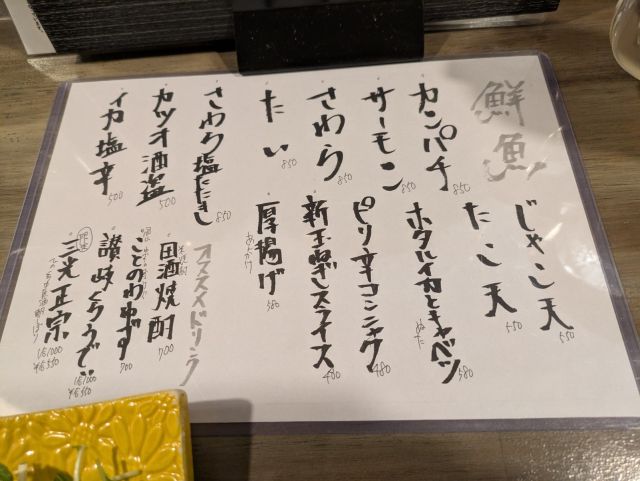 鮮魚
カンパチ 850
サーモン 850
さわら 850
たい 850
さわら塩たたき 850
カツオ酒盗 500
イカ塩辛 500
じゃこ天 550
たこ天 550
ホタルイカとキャベツ ぬた 580
ピリ辛コンニャク 480
新玉ねぎスライス 400
厚揚げ あんかけ 580
オススメドリンク
焼酎 700
ことのわゆず 700
讃岐くらうでぃ 1合1000 4合3550
三光正宗 1合1000 4合3550